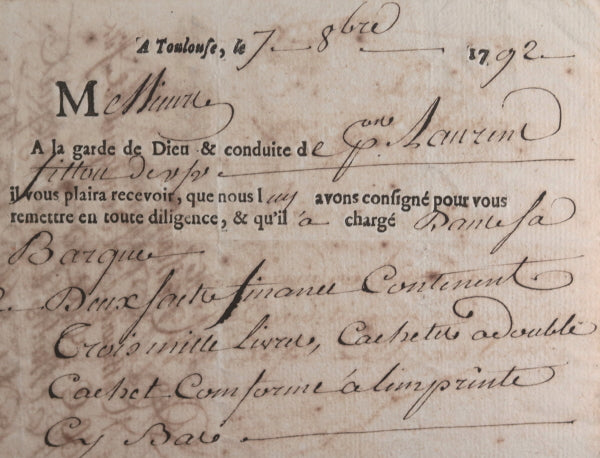 A Toulouse, le 7 8bre 1792
Messieurs
A la garde de Dieu & conduite de pon Laurent
fittou de
il vous plaira recevoir, que nous luy avons consigné pour vous
remettre en toute diligence, & qu'il à chargé Dans sa
Barque
Deux sacs finance Contenent
Trois mille Livres, Cachetés a double
Cachet Comforme à limprinte
Cy Bas